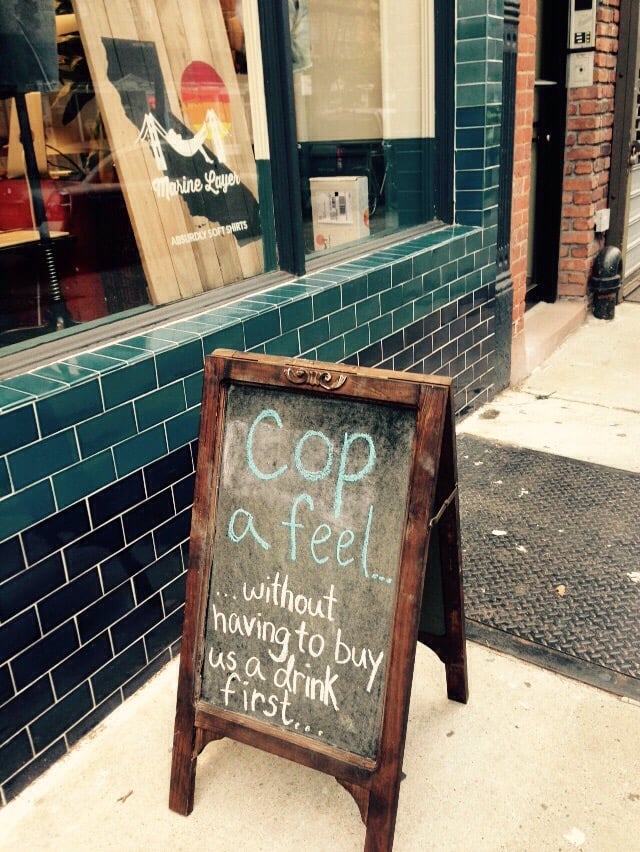 Marine Layer
ABSURDLY SOFT SHIRTS
Cop
a feel...
...without
having to buy
us a drink
first...